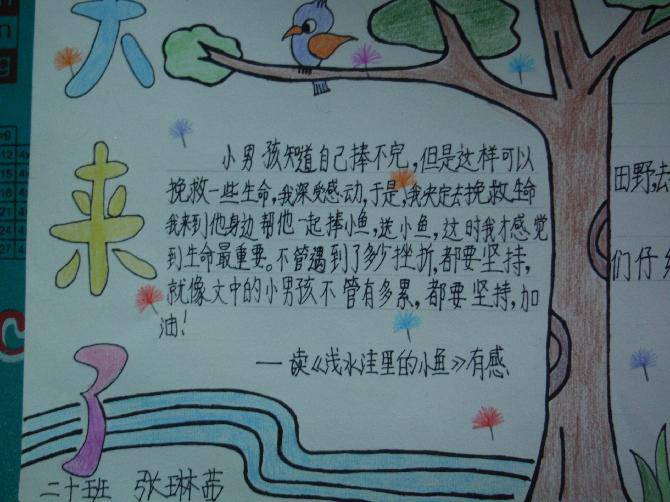 天
来
了
小男孩知道自己捧不完,但是这样可以
挽救一些生命,我深受感动,于是,我决定去挽救生命
我来到他身边帮他一起捧小鱼,送小鱼,这时我才感觉
到生命最重要。不管遇到了多少挫折,都要坚持,
就像文中的小男孩不管有多累,都要坚持,加
油!
—读《浅水洼里的小鱼》有感
二十班 张琳茜
田野,去
们仔